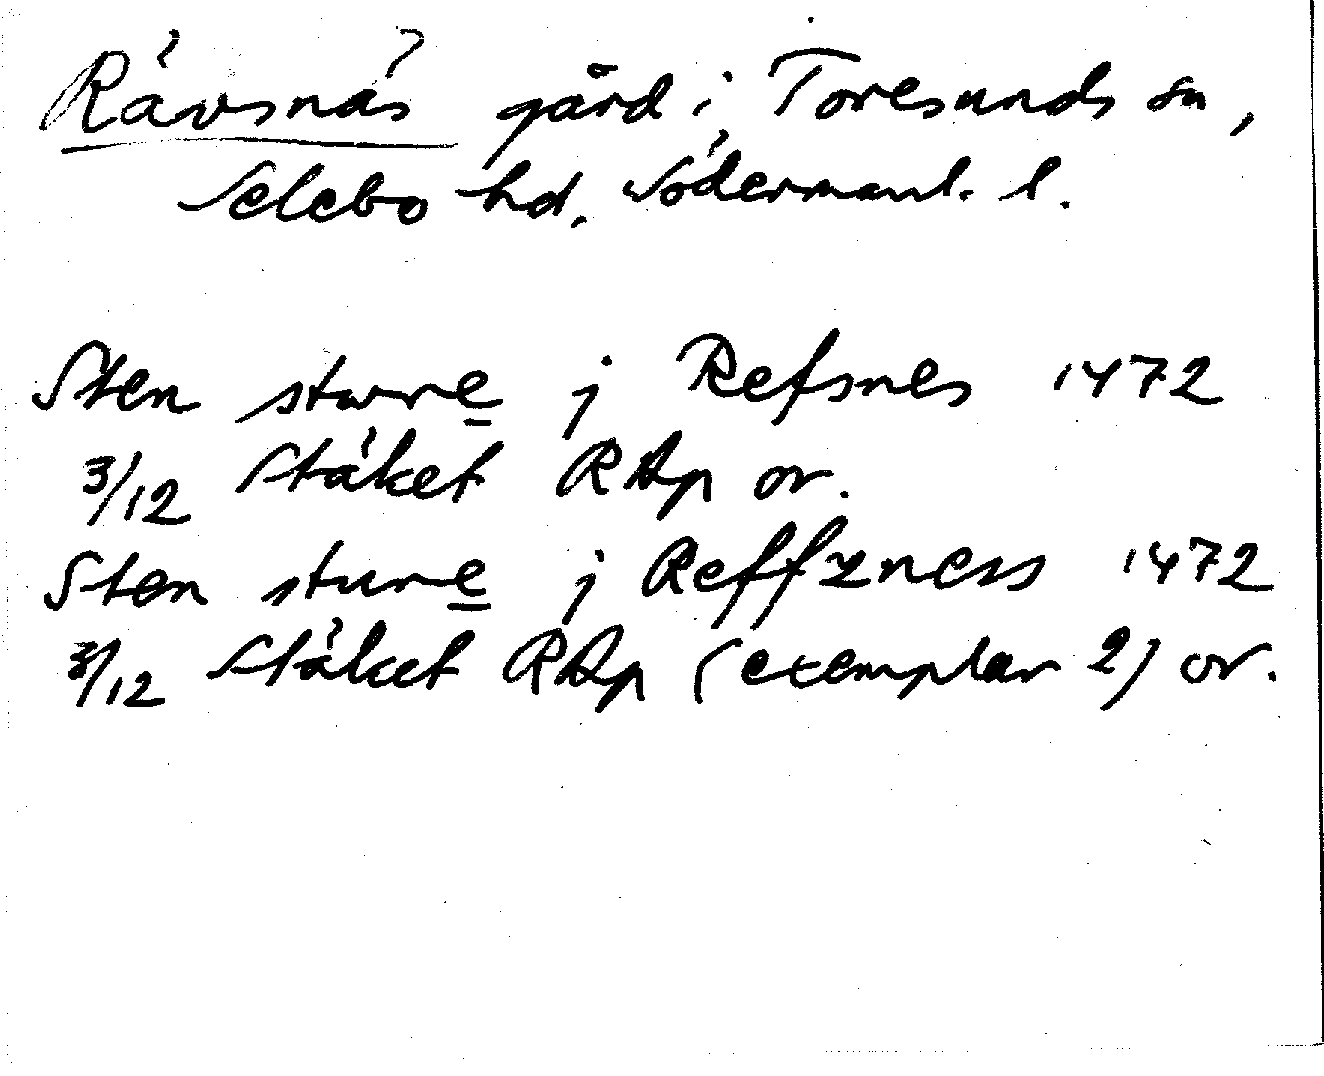 Rävsnäs gård i Toresunds sn,
Selebo hd, Södermanl. l.
Sten sture j Refsnes 1472
3/12 Stäket RAp or.
Sten sture j Reffzness 1472
3/12 Stäket RAp (exemplar 2) or.